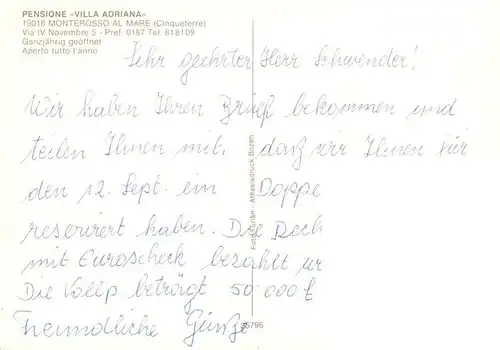 PENSIONE «VILLA ADRIANA»
19016 MONTEROSSO AL MARE (Cinqueterre)
Via IV Novembre 5 - Pref. 0187 Tel. 818109
Ganzjährig geöffnet
Aperto tutto l'anno
Sehr geehrter Herr Schwender!
Wir haben Ihren Brief bekommen und
teilen Ihnen mit, daß wir Ihnen für
den 12. Sept. ein Doppe
reserviert haben. Die Rech
mit Euroscheck bezahlt
Die Vollp beträgt 50 000 £
Freundliche Grüße
35796